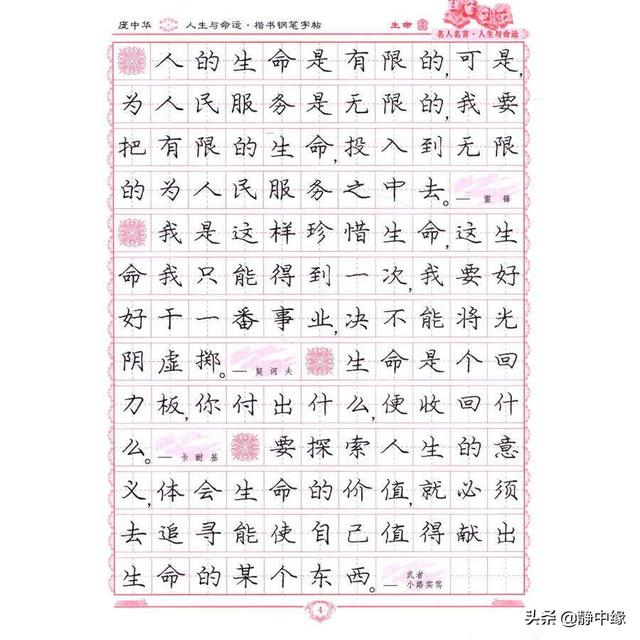 庞中华 人生与命运·楷书钢笔字帖 生命
名人名言·人生与命运
人的生命是有限的,可是,
为人民服务是无限的,我要
把有限的生命,投入到无限
的为人民服务之中去。— 雷锋
我是这样珍惜生命,这生
命我只能得到一次,我要好
好干一番事业,决不能将光
阴虚掷。— 契诃夫 生命是个回
力板,你付出什么,便收回什
么。— 卡耐基 要探索人生的意
义,体会生命的价值,就必须
去追寻能使自己值得献出
生命的某个东西。— 武者小路实笃
4
头条@静中缘